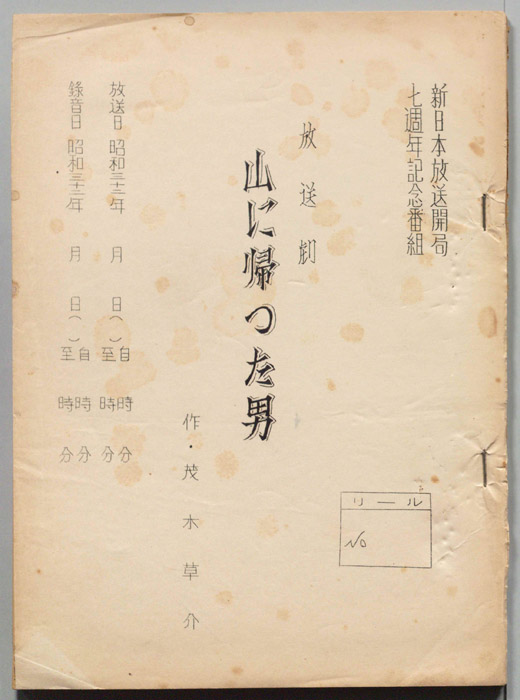 新日本放送開局
七週年記念番組
放送劇
山に帰つた男
作・茂木草介
放送日 昭和三十三年 月 日( ) 自 時 分
至 時 分
錄音日 昭和三十三年 月 日( ) 自 時 分
至 時 分
リール
No